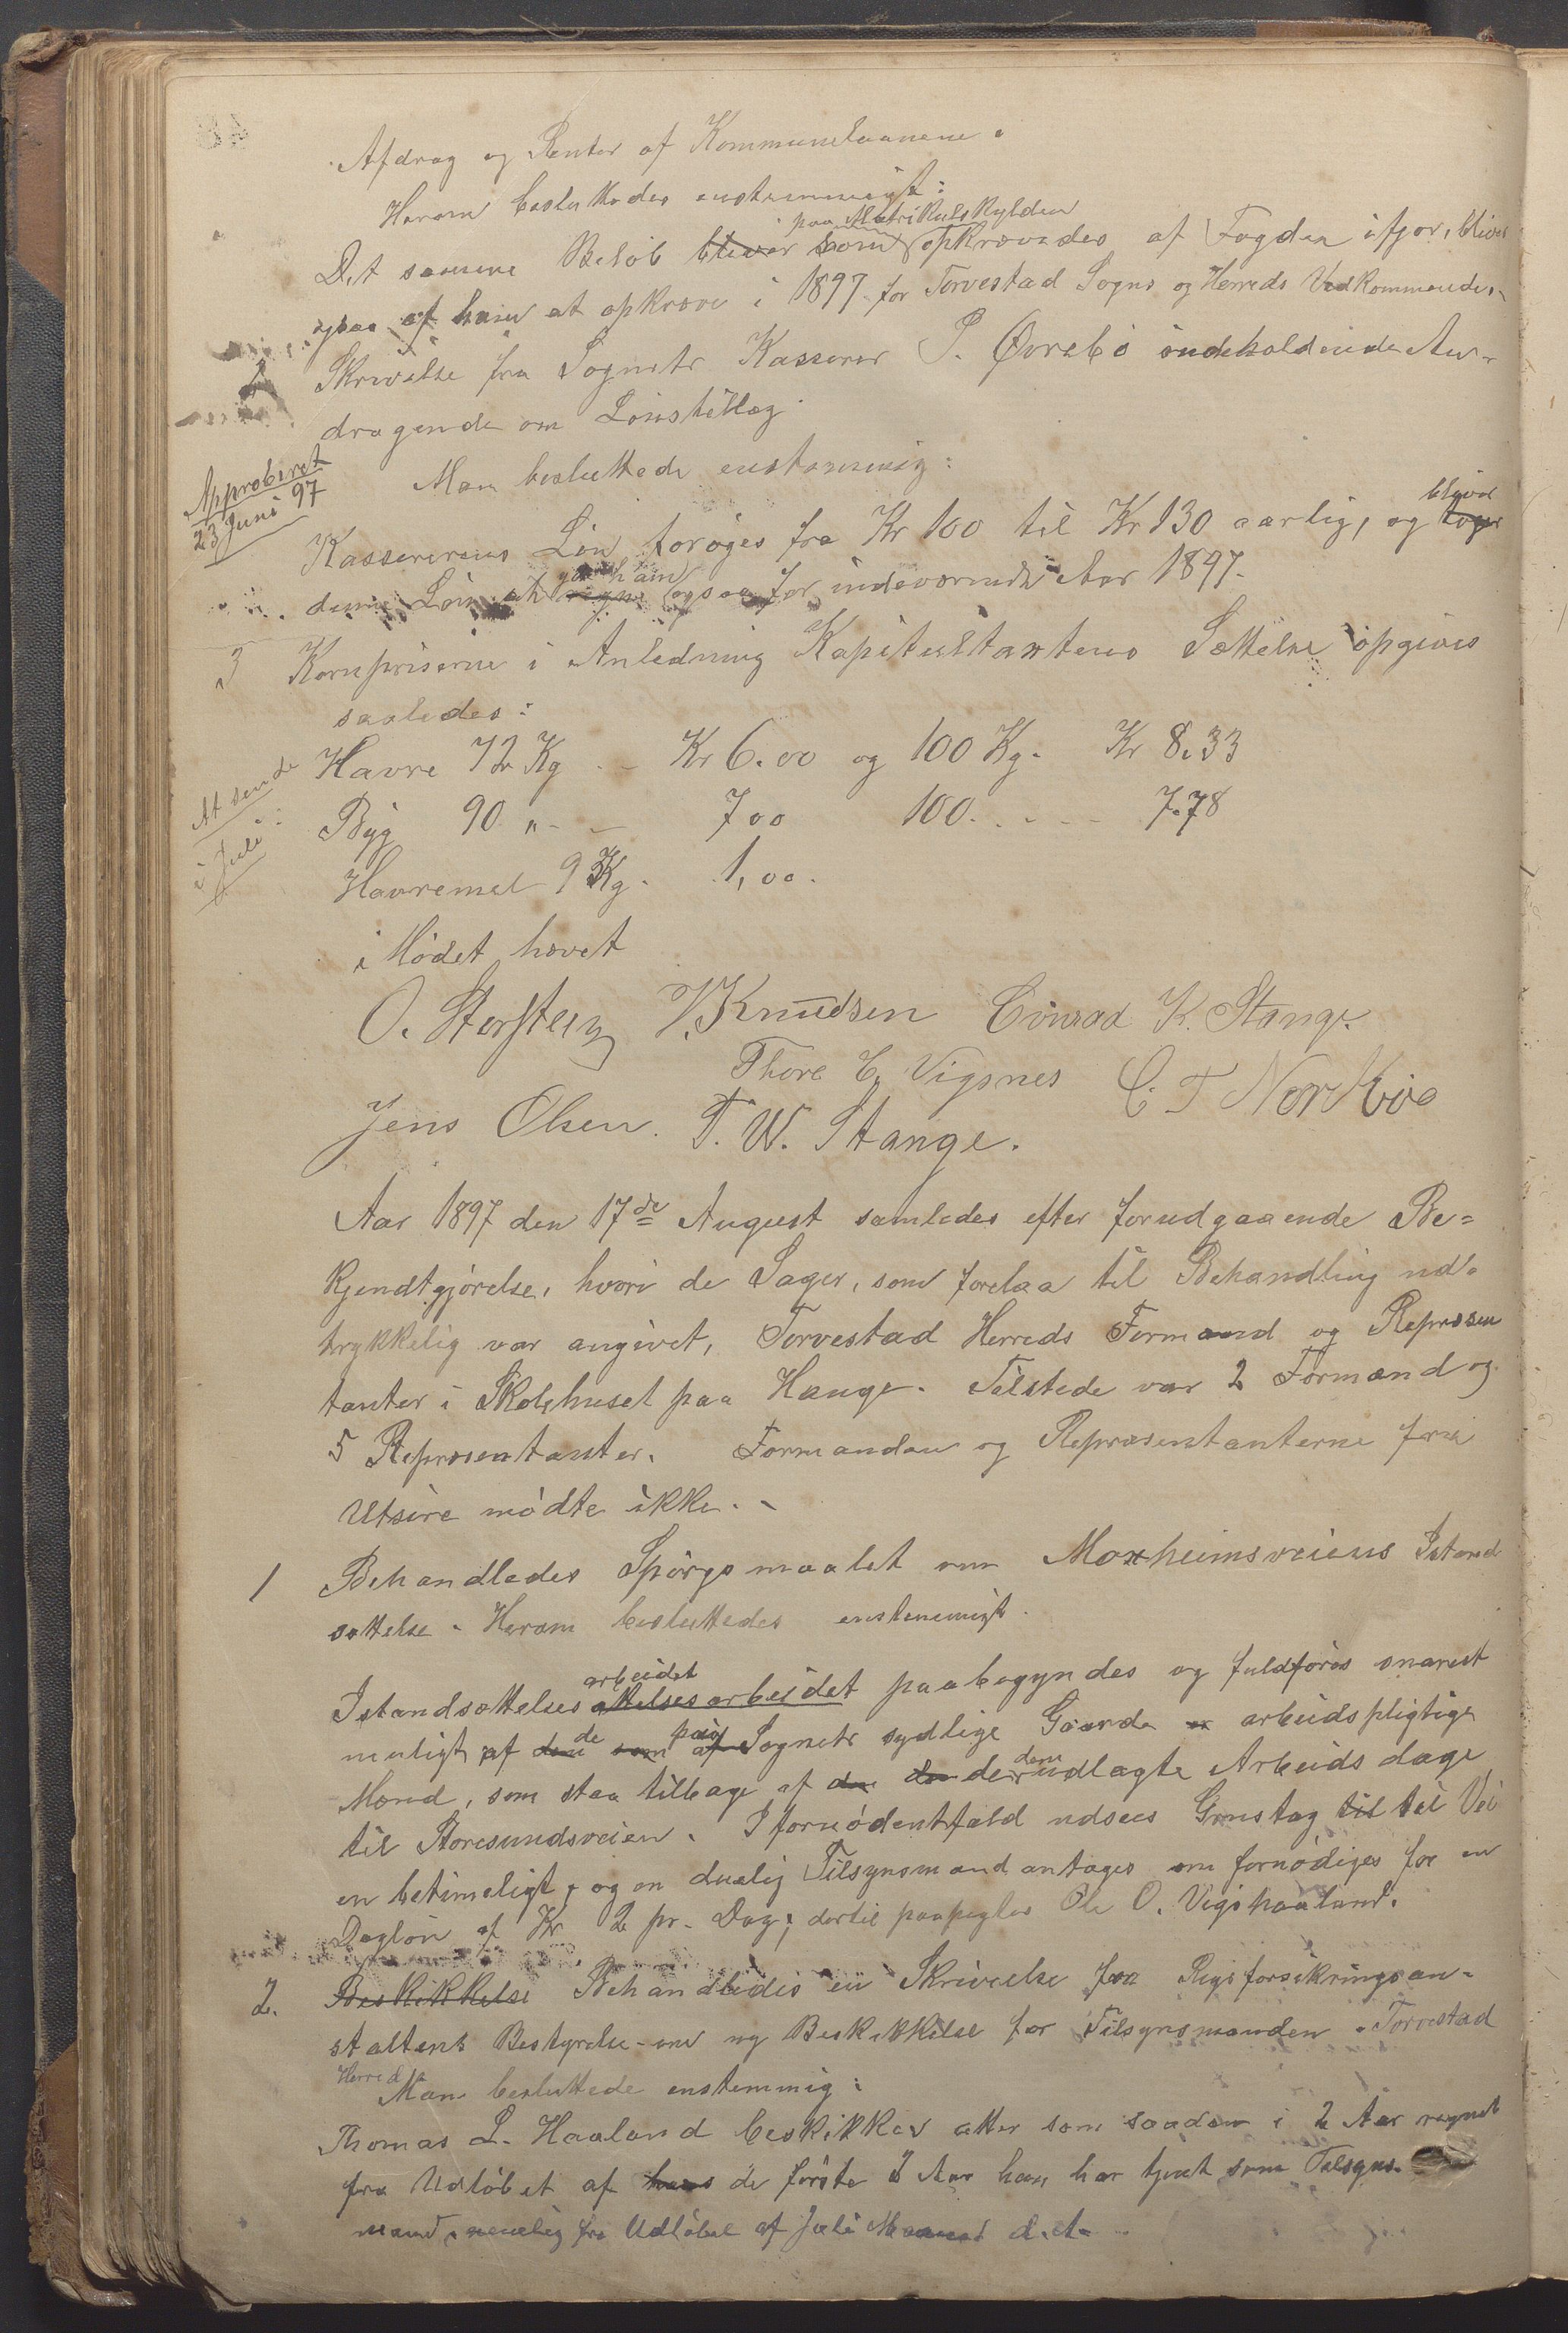 Afdrag og Renter af Kommunelaanene.
Herom besluttedes enstemmigt:
paa Matrikulskylden
Det samme Beløb bliver som opkrævedes af Fogden ifjor, bliver
ogsaa af ham at opkræve i 1897 for Torvestad Sogns og Herreds Vedkommende.
2 Skrivelse fra Sognets Kasserer P. Øvrebø indeholdende An-
dragende om Lønstillæg.
Man besluttede enstemmig:
Approberet
23 Juni 97
bliver
Kassererens Løn forøges fra Kr 100 til Kr 130 aarlig, og
ham
denne Løn at ogsaa for indeværende Aar 1897.
3 Kornpriserne i Anledning Kapitelstaxtens Sættelse opgives
saaledes:
At sende
i Juli
Havre 72 Kg - Kr 6.00 og 100 Kg. Kr 8.33
Byg 90 " - - 7 00 100. - - - 7.78
Havremel 9 Kg. 1,00.
Mødet hævet
O. Storstein V. Knudsen Conrad K. Stange.
Thore E. Vigsnes C. T Nordbøe
Jens Olsen. T. W. Stange.
Aar 1897 den 17de August samledes efter forudgaaende Be=
kjendtgjørelse, hvori de Sager, som forelaa til Behandling ud-
trykkelig var angivet, Torvestad Herreds Formænd og Repræsen
tanter i Skolehuset paa Hauge. Tilstede var 2 Formænd og
5 Repræsentanter. Formanden og Repræsentanterne fra
Utsire mødte ikke. -
1 Behandledes Spørgsmaalet om Moxheimsveiens Istand
sættelse. Herom besluttedes enstemmigt.
arbeidet
Istandsættelses attelsesarbeidet paabegyndes og fuldføres snarest
de paa
muligt af den som af Sognets sydlige Gaarde arbeidspligtige
dem
Mænd, som staa tilbage af de udlagte Arbeidsdage
til Storesundsveien. I fornødentfald udsees Grustag til til Vei
en betimeligt, og en duelig Tilsynsmand antages om fornødiges for en
Dagløn af Kr 2 pr. Dag; dertil paapegtes Ole O. Vigshaaland.
2. Beskikkelse Behandledes en Skrivelse fra Rigsforsikringsan-
staltens Bestyrelse om ny Beskikkelse for Tilsynsmanden i Torvestad
Herred
Man besluttede enstemmig:
Thomas L. Haaland beskikkes atter som saadan i 2 Aar regnet
fra Udløbet af hans de første 2 Aar han har tjent som Tilsyns-
mand, nemlig fra Udløbet af Juli Maaned d. A. -